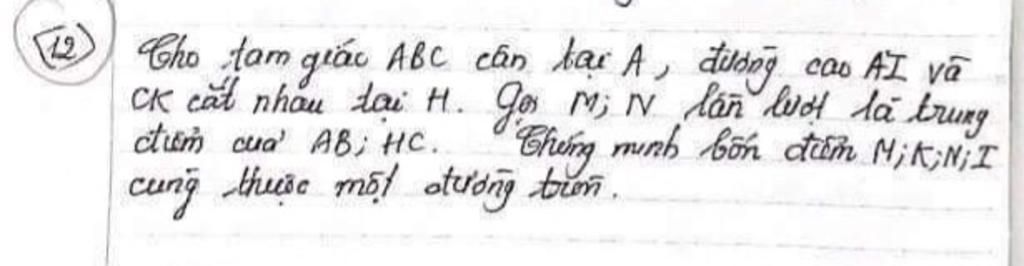 12
Cho tam giác ABC cân tại A, đường cao AI và
CK cắt nhau tại H. Gọi M; N lần lượt là trung
điểm của AB; HC. Chứng minh bốn điểm M; K; N; I
cùng thuộc một đường tròn.